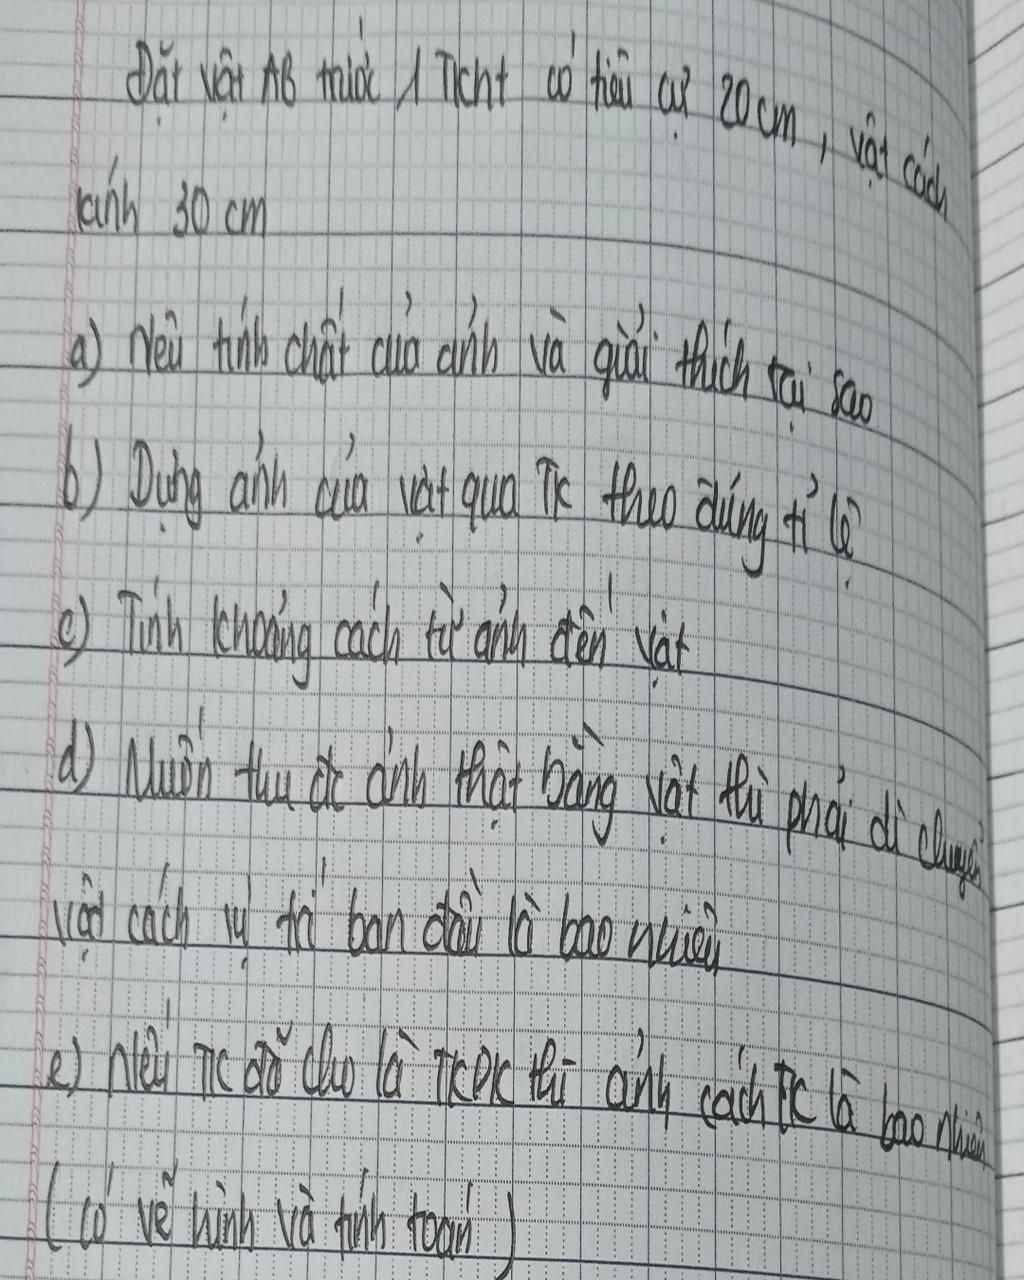 Đặt vật AB trước 1 TKHT có tiêu cự 20 cm, vật cách
kính 30 cm
a) Nêu tính chất của ảnh và giải thích tại sao
b) Dựng ảnh của vật qua TK theo đúng tỉ lệ
c) Tính khoảng cách từ ảnh đến vật
d) Muốn thu đc ảnh thật bằng vật thì phải di chuyển
vật cách vị trí ban đầu là bao nhiêu
e) Nếu TK đã cho là TKPK thì ảnh cách TK là bao nhiêu
(có vẽ hình và tính toán)